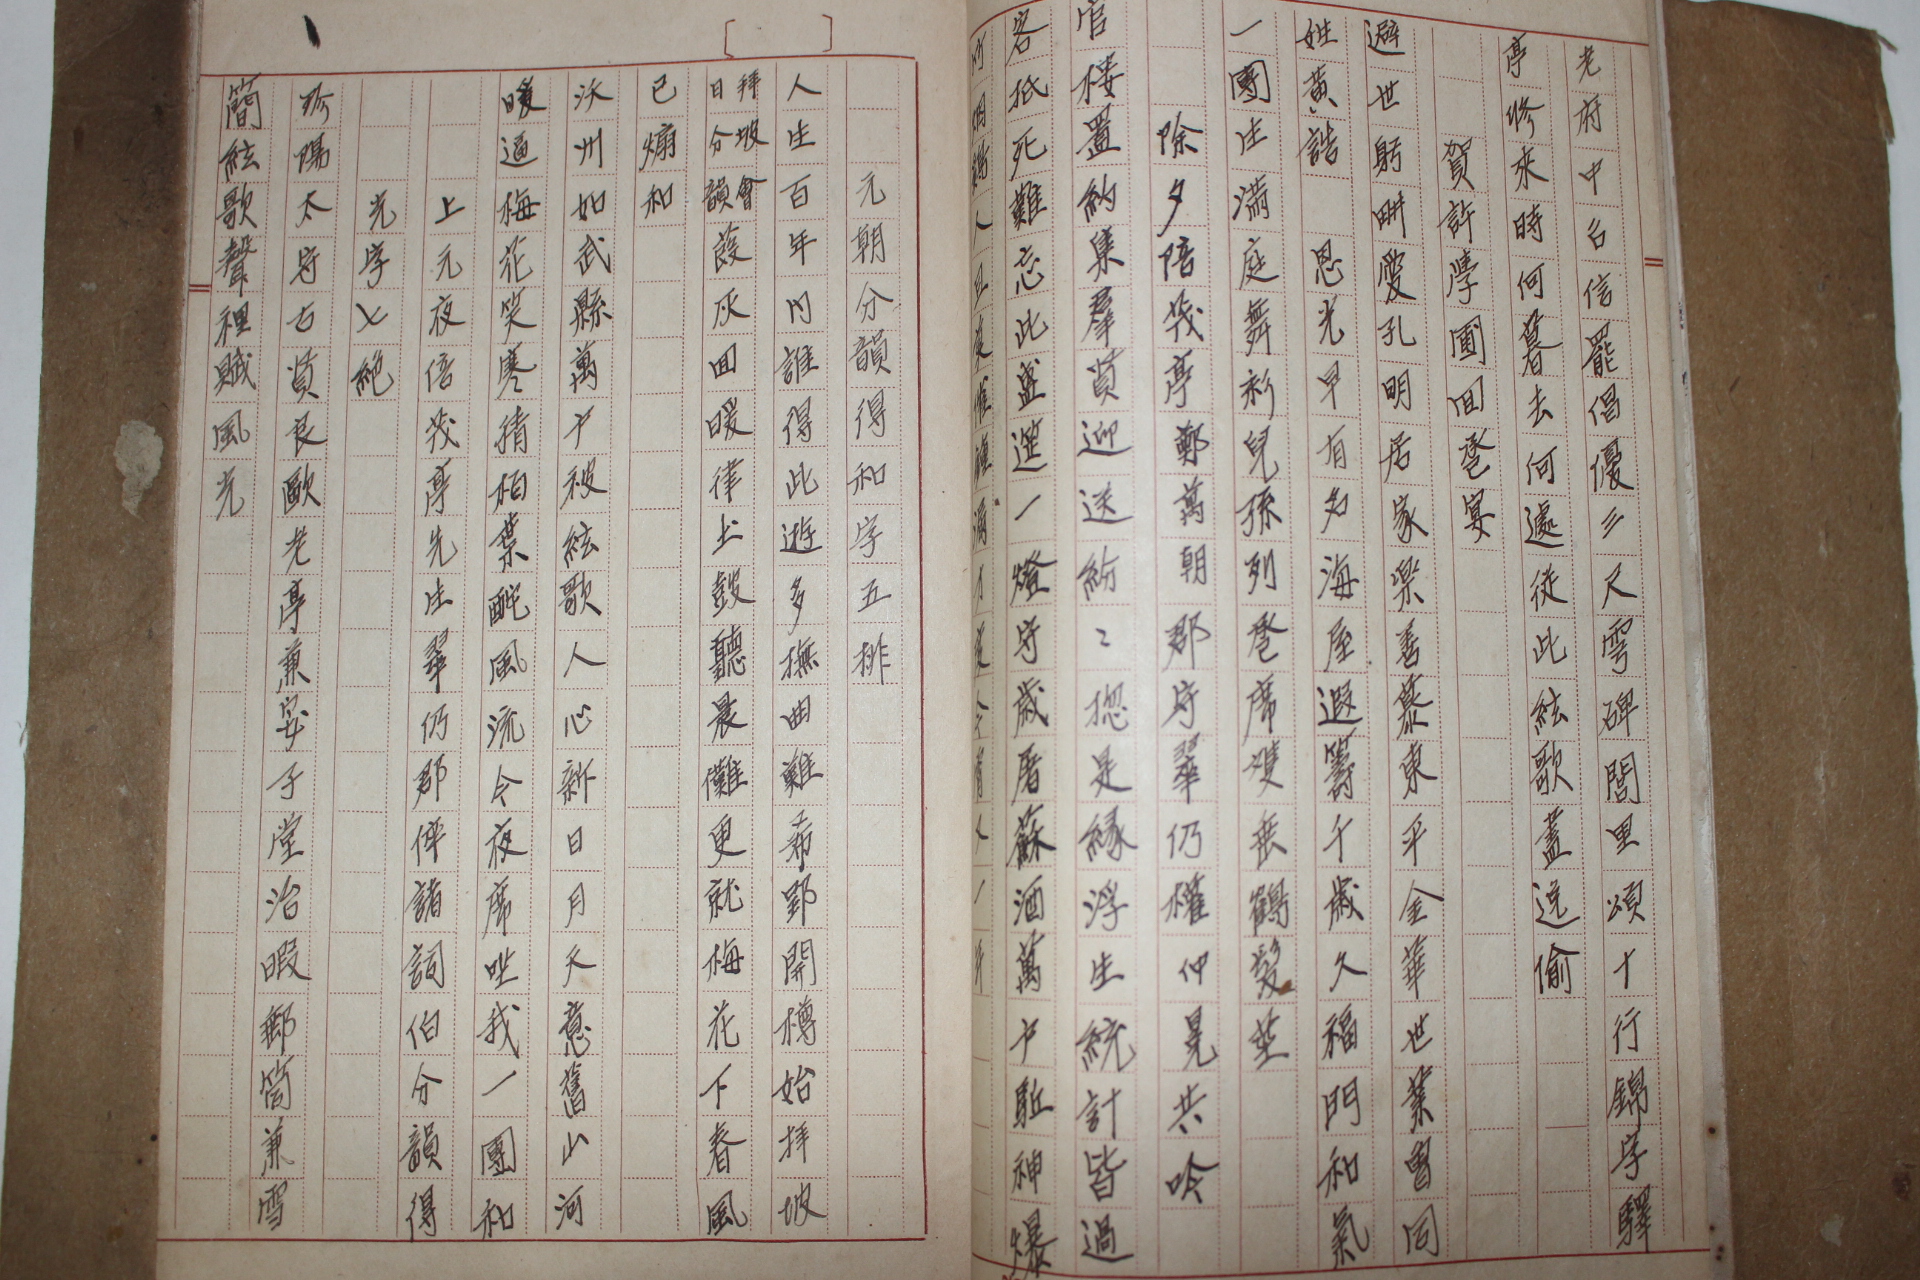 老府中名信罷倡優三尺穹碑閭里頌十行錦字驛
亭修來時何暮去何處從此絃歌蓋逆偷
賀許學圃回卺宴
避世躬畊愛孔明居家樂善慕東平金華世業曾同
姓黃誥 恩光早有名海屋遐籌千歲久福門和氣
一團生滿庭舞彩兒孫列卺席雙垂鶴髮莖
除夕陪茂亭鄭萬朝郡守翠仍權仲晃共吟
官樓置酌集羣賢迎送紛〻摠是緣浮生統計皆過
客抵死難忘此盛筵一燈守歲屠蘇酒萬戶駈神爆
元朝分韻得和字五排
人生百年內誰得此遊多撫曲難希郢開樽始拜坡
拜坡會
日分韻
葭灰回暖律土鼓聽晨儺更就梅花下春風
已煽和
沃州如武縣萬戶被絃歌人心新日月天意舊山河
暖逼梅花笑寒猜柏葉酡風流今夜席坐我一團和
上元夜偣茂亭先生翠仍郡倅諸詞伯分韻得
光字七絕
珍陽太守古賢良歐老亭兼安子堂治暇郵筒兼雪
簡絃歌聲裡賦風光